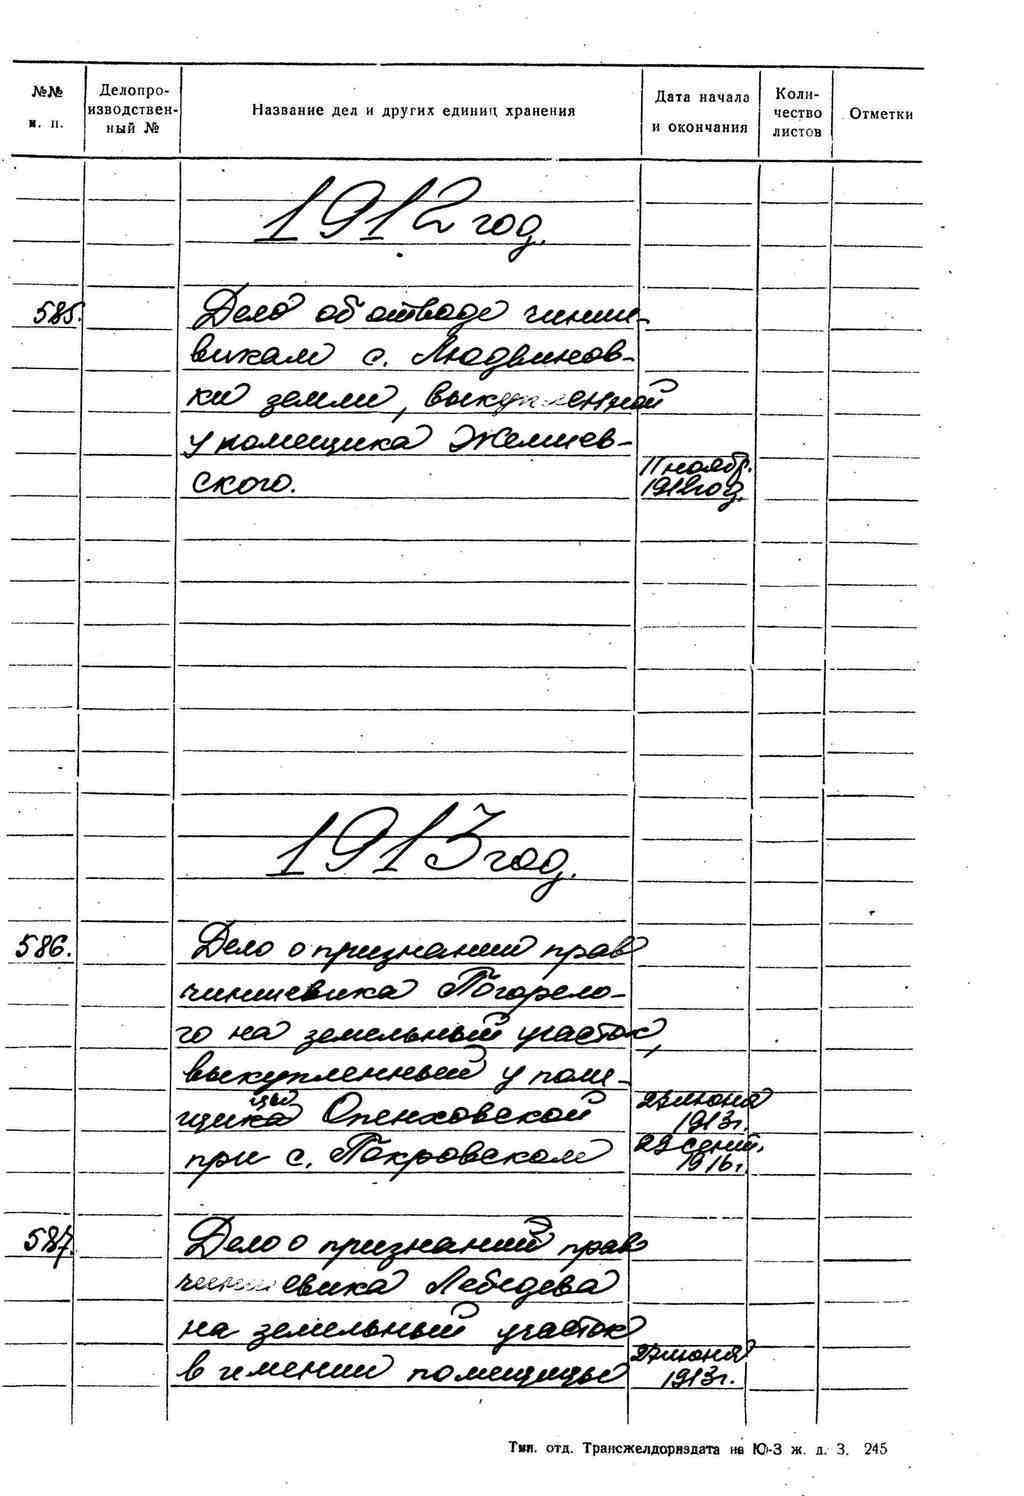 №№
п. п.
Делопро-
изводствен-
ный №
Название дел и других единиц хранения
Дата начала
и окончания
Коли-
чество
листов
Отметки
1912 год.
585.
Дело об отводе чинше-
викам с. Людвинов-
ки земли, выкупленной
у помещика Жмиев-
ского.
11 ноябр.
1912 год.
1913 год.
586.
Дело о признании прав
чиншевика Погорело-
го на земельный участок,
выкупленный у поме-
щика
цы
Опенховской
при с. Покровском
27 июня
1913 г.
29 сент.
1916 г.
587.
Дело о признании прав
чиншевика Лебедева
на земельный участок
в имении помещицы
27 июня
1913 г.
Тип. отд. Трансжелдориздата на Ю-З ж. д. З. 245